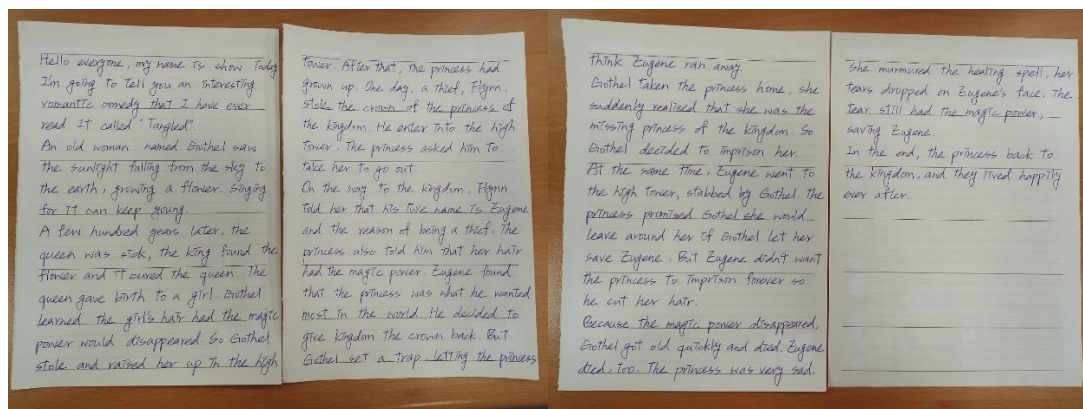 Hello everyone, my name is show. Today
I'm going to tell you an interesting
romantic comedy that I have ever
read. It called "Tangled".
An old woman named Gothel saw
the sunlight falling from the sky to
the earth, growing a flower. Singing
for it can keep young.
A few hundred years later, the
queen was sick, the king found the
flower and it cured the queen. The
queen gave birth to a girl. Gothel
learned the girl's hair had the magic
power would disappeared. So Gothel
stole and raised her up in the high
tower. After that, the princess had
grown up. One day, a thief, Flynn,
stole the crown of the princess of
the kingdom. He enter into the high
tower. The princess asked him to
take her to go out.
On the way to the kingdom, Flynn
told her that his ture name is Eugene
and the reason of being a thief. The
princess also told him that her hair
had the magic power. Eugene found
that the princess was what he wanted
most in the world. He decided to
give kingdom the crown back. But
Gothel set a trap, letting the princess
think Eugene ran away
Gothel taken the princess home, she
suddenly realised that she was the
missing princess of the kingdom. So
Gothel decided to imprison her.
At the same time, Eugene went to
the high tower, stabbed by Gothel. The
princess promised Gothel she would
leave around her if Gothel let her
save Eugene. But Eugene didn't want
the princess to imprison forever so
he cut her hair.
Because the magic power disappeared,
Gothel got old quickly and died. Eugene
died, too. The princess was very sad.
She murmured the healing spell, her
tears dropped on Eugene's face. The
tear still had the magic power,
saving Eugene.
In the end, the princess back to
the kingdom, and they lived happily
ever after.